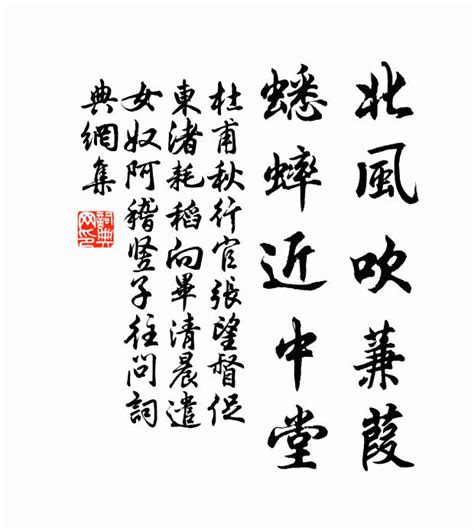 北風吹蒹葭
蟋蟀近中堂
杜甫秋行官張望督促
東渚耗稻向畢清晨遣
女奴阿稽竪子往問詞
典網集
詞典
网印